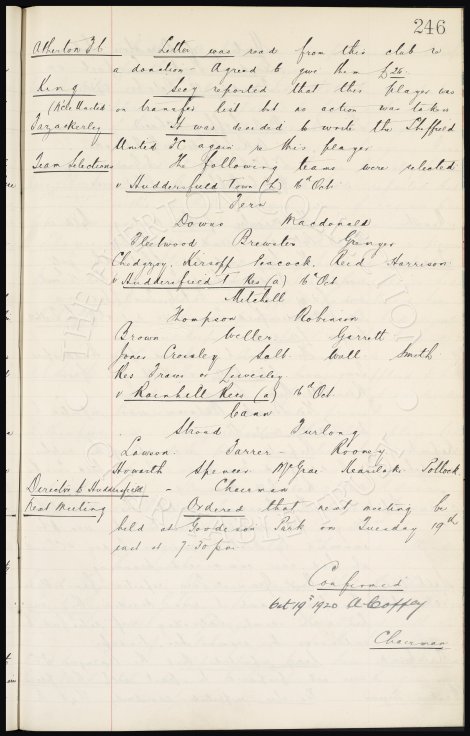 246
Atherton F.C Letter was read from this club re
a donation - Agreed to give them £26.
King Secy reported that this player was
(Kirk United on transfer list but no action was taken
Fazackerley It was decided to write the Sheffield
United FC again re this player
Team Selections The following teams were selected
v Huddersfield Town (h) 16th Oct.
Fern
Downs Macdonald
Fleetwood Brewster Grenyer
Chedgzoy. Kirsopp Peacock, Reid Harrison
v Huddersfield T Res (a) 16th Oct
Mitchell
Thompson Robinson
Brown Weller. Garrett
Jones Crossley Salt. Wall Smith
Res Evans or Leivesley
v Rainhill Rees (a) 16th Oct.
Cann
Stroud Furlong
Lawson. Farrer Rooney
Howarth Spencer McGrae Pollock.
Director to Huddersfield - Chairman
Next Meeting Ordered that next meeting be
held at Goodison Park on Tuesday 19th
inst at 7-30 pm
Confirmed
Oct 19th 1920 A Coffey
Chairman